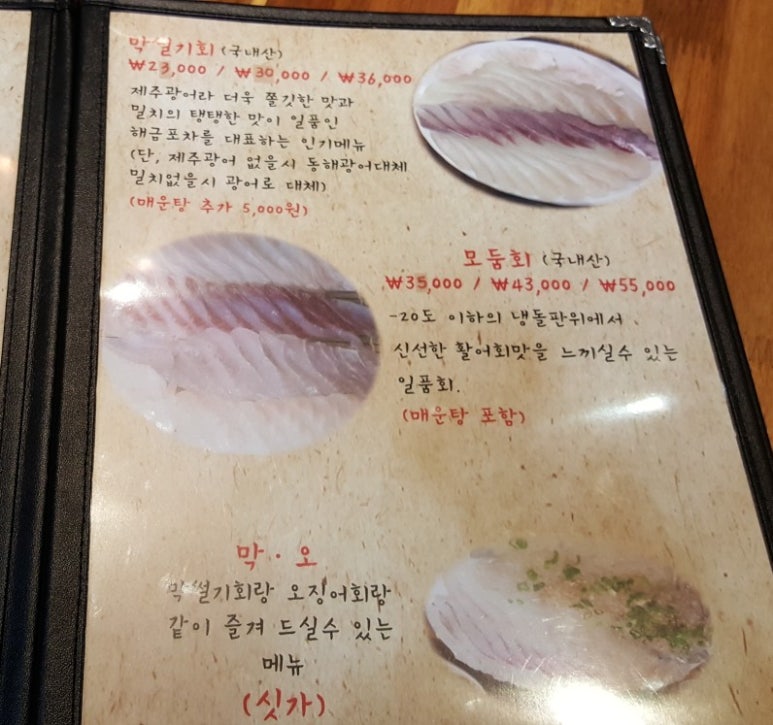 막썰기회 (국내산)
₩23,000 / ₩30,000 / ₩36,000
제주광어라 더욱 쫄깃한 맛과
밀치의 탱탱한 맛이 일품인
해금포차를 대표하는 인기메뉴
(단, 제주광어 없을시 동해광어대체
밀치없을시 광어로 대체)
(매운탕 추가 5,000원)
모둠회 (국내산)
₩35,000 / ₩43,000 / ₩55,000
-20도 이하의 냉돌판위에서
신선한 활어회맛을 느끼실수 있는
일품회.
(매운탕 포함)
막 · 오
막썰기회랑 오징어회랑
같이 즐겨 드실수 있는
메뉴
(싯가)